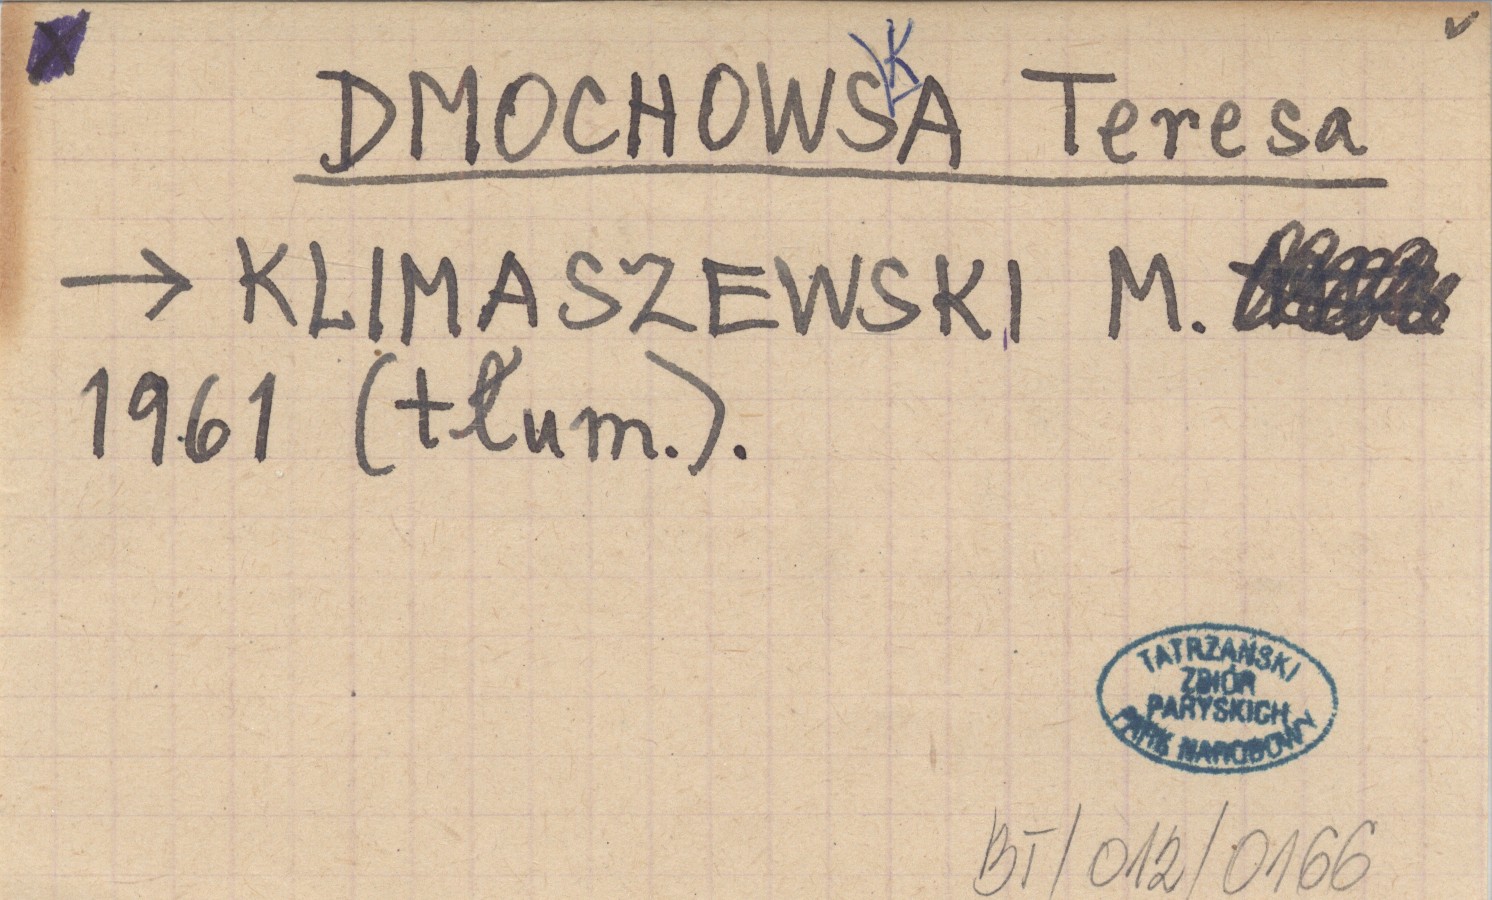 DMOCHOWSKA Teresa
→ KLIMASZEWSKI M.
1961 (tłum.).
TATRZAŃSKI
ZBIÓR
PARYSKICH
PARK NARODOWY
BT/012/0166